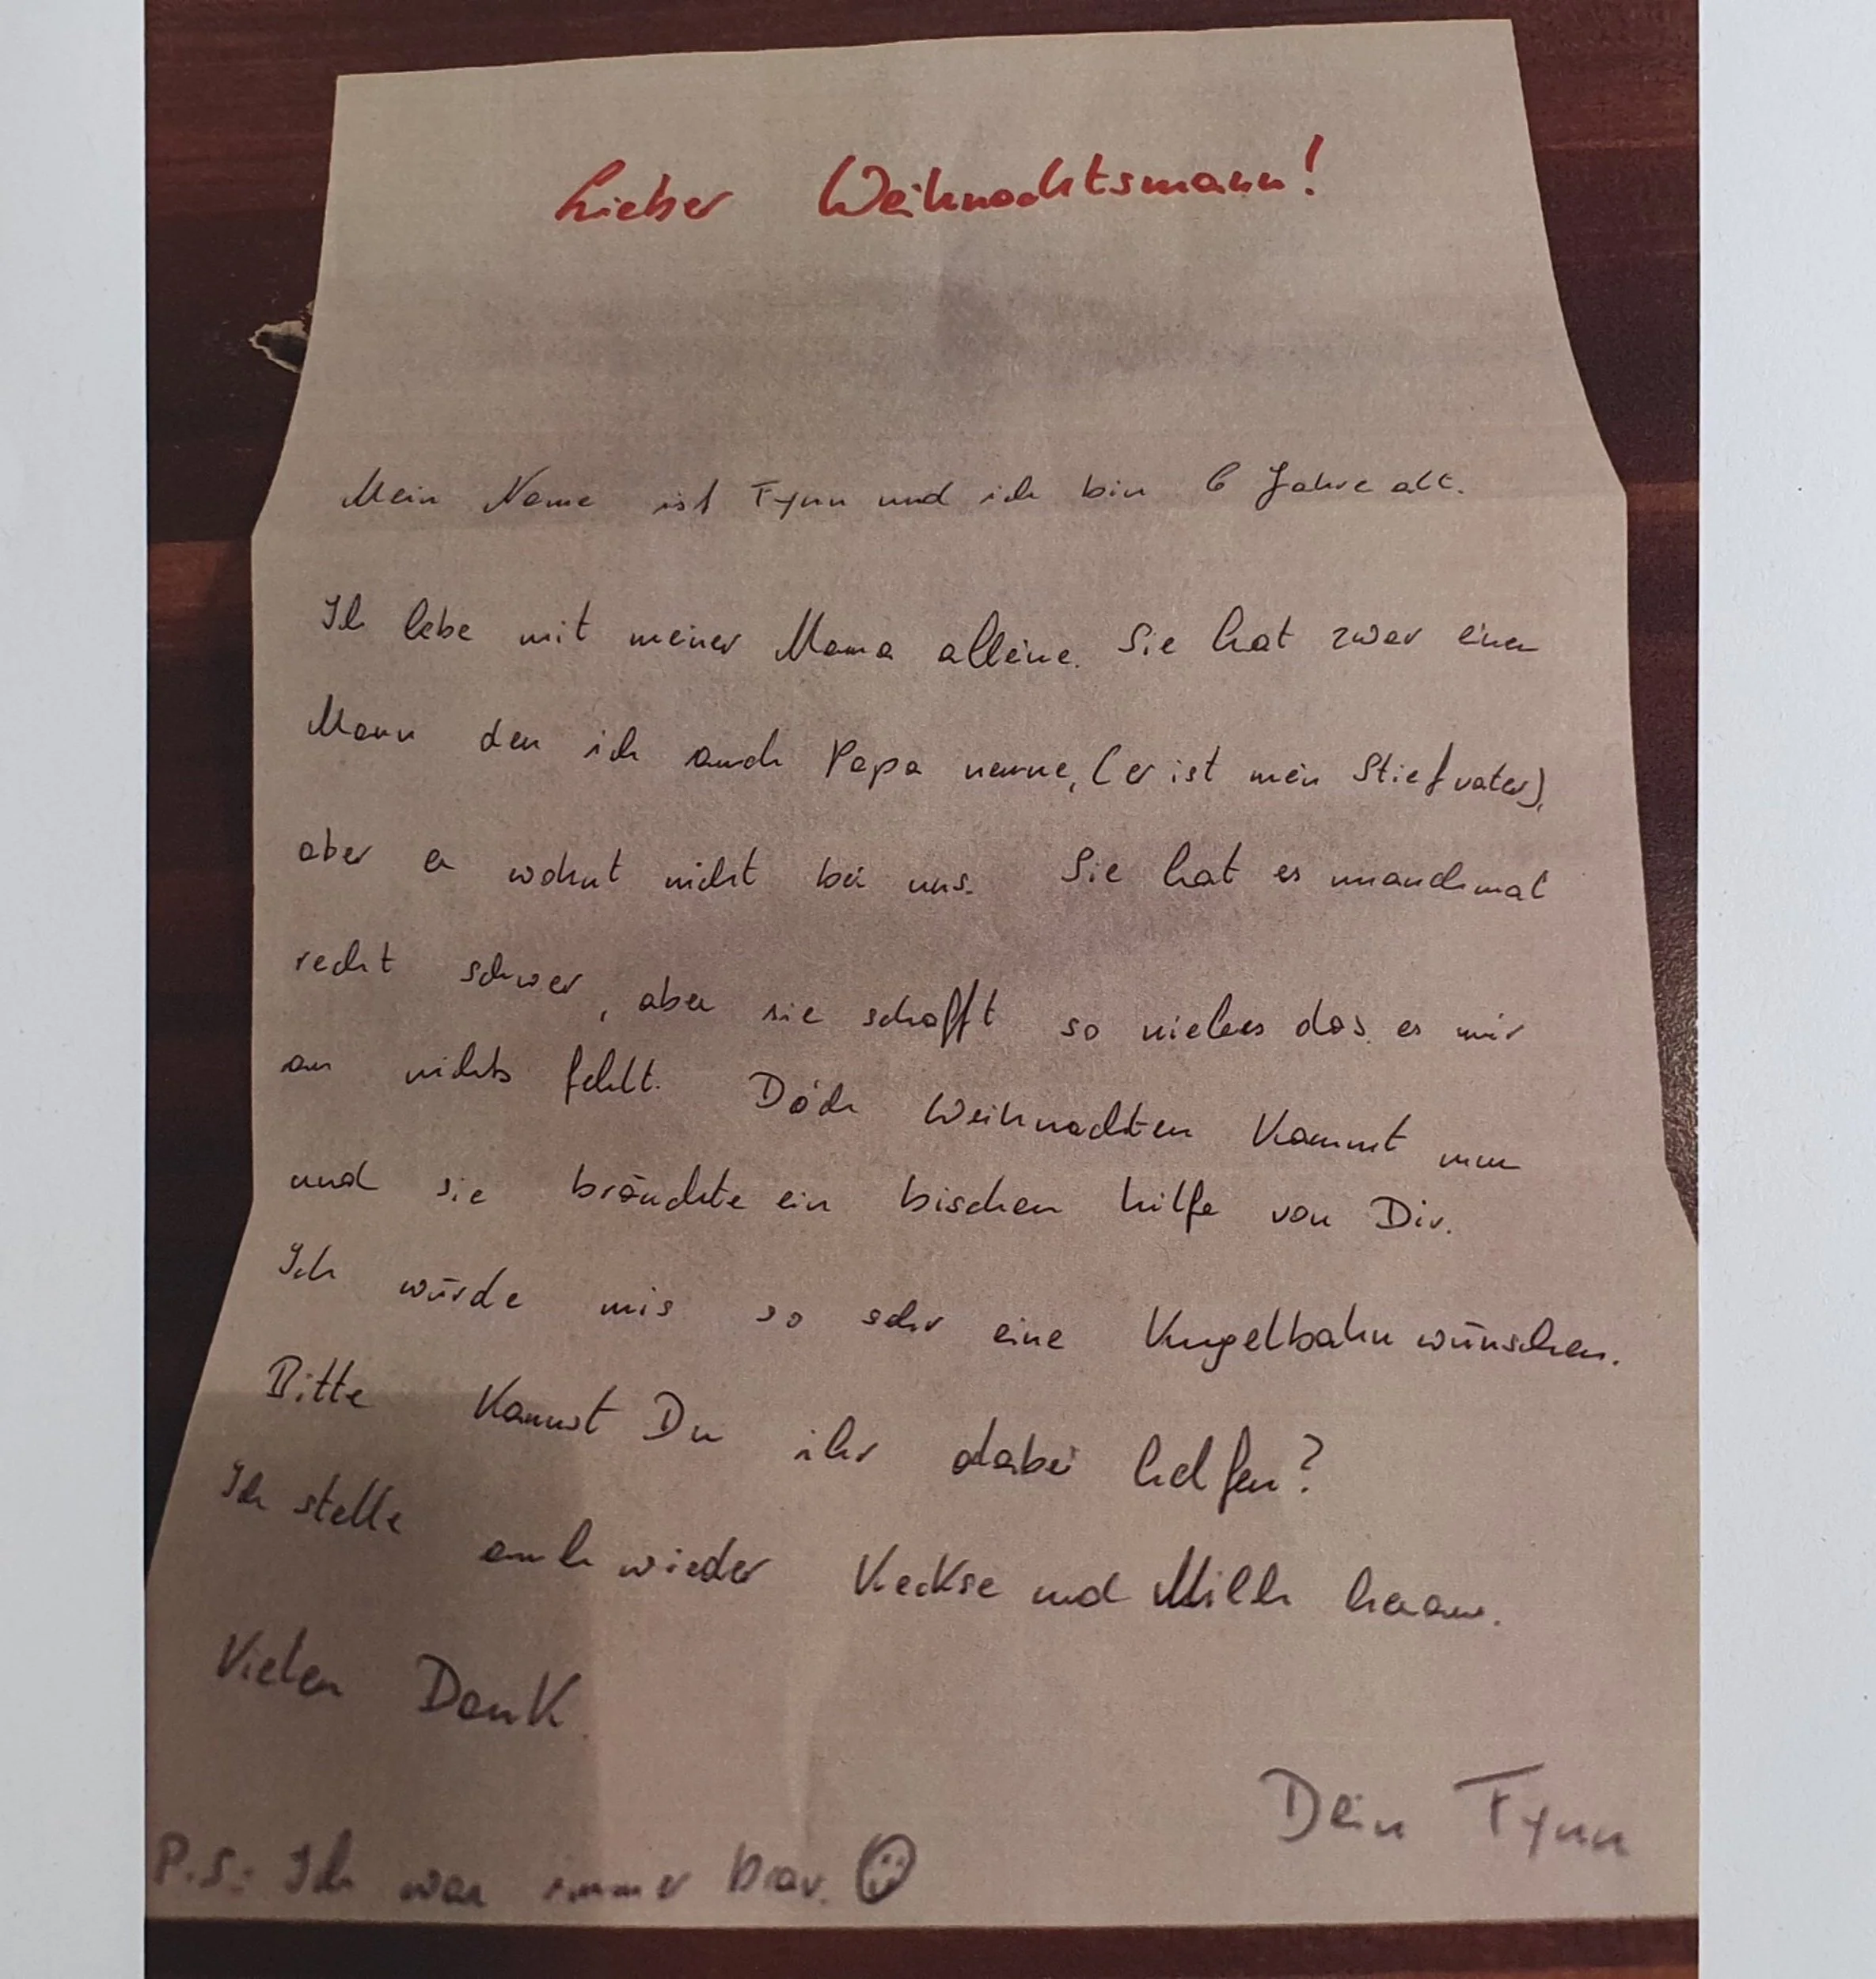 Lieber Weihnachtsmann!
Mein Name ist Fynn und ich bin 6 Jahre alt.
Ich lebe mit meiner Mama alleine. Sie hat zwar einen
Mann den ich auch Papa nenne, (er ist mein Stiefvater),
aber er wohnt nicht bei uns. Sie hat es manchmal
recht schwer, aber sie schafft so vieles das es mir
an nichts fehlt. Doch Weihnachten kommt nun
und sie bräuchte ein bischen hilfe von Dir.
Ich würde mir so sehr eine Kugelbahn wünschen.
Bitte Kannst Du ihr dabei helfen?
Ich stelle auch wieder Keckse und Milch heraus.
Vielen Dank
Dein Fynn
P.S.: Ich war immer brav. ☺